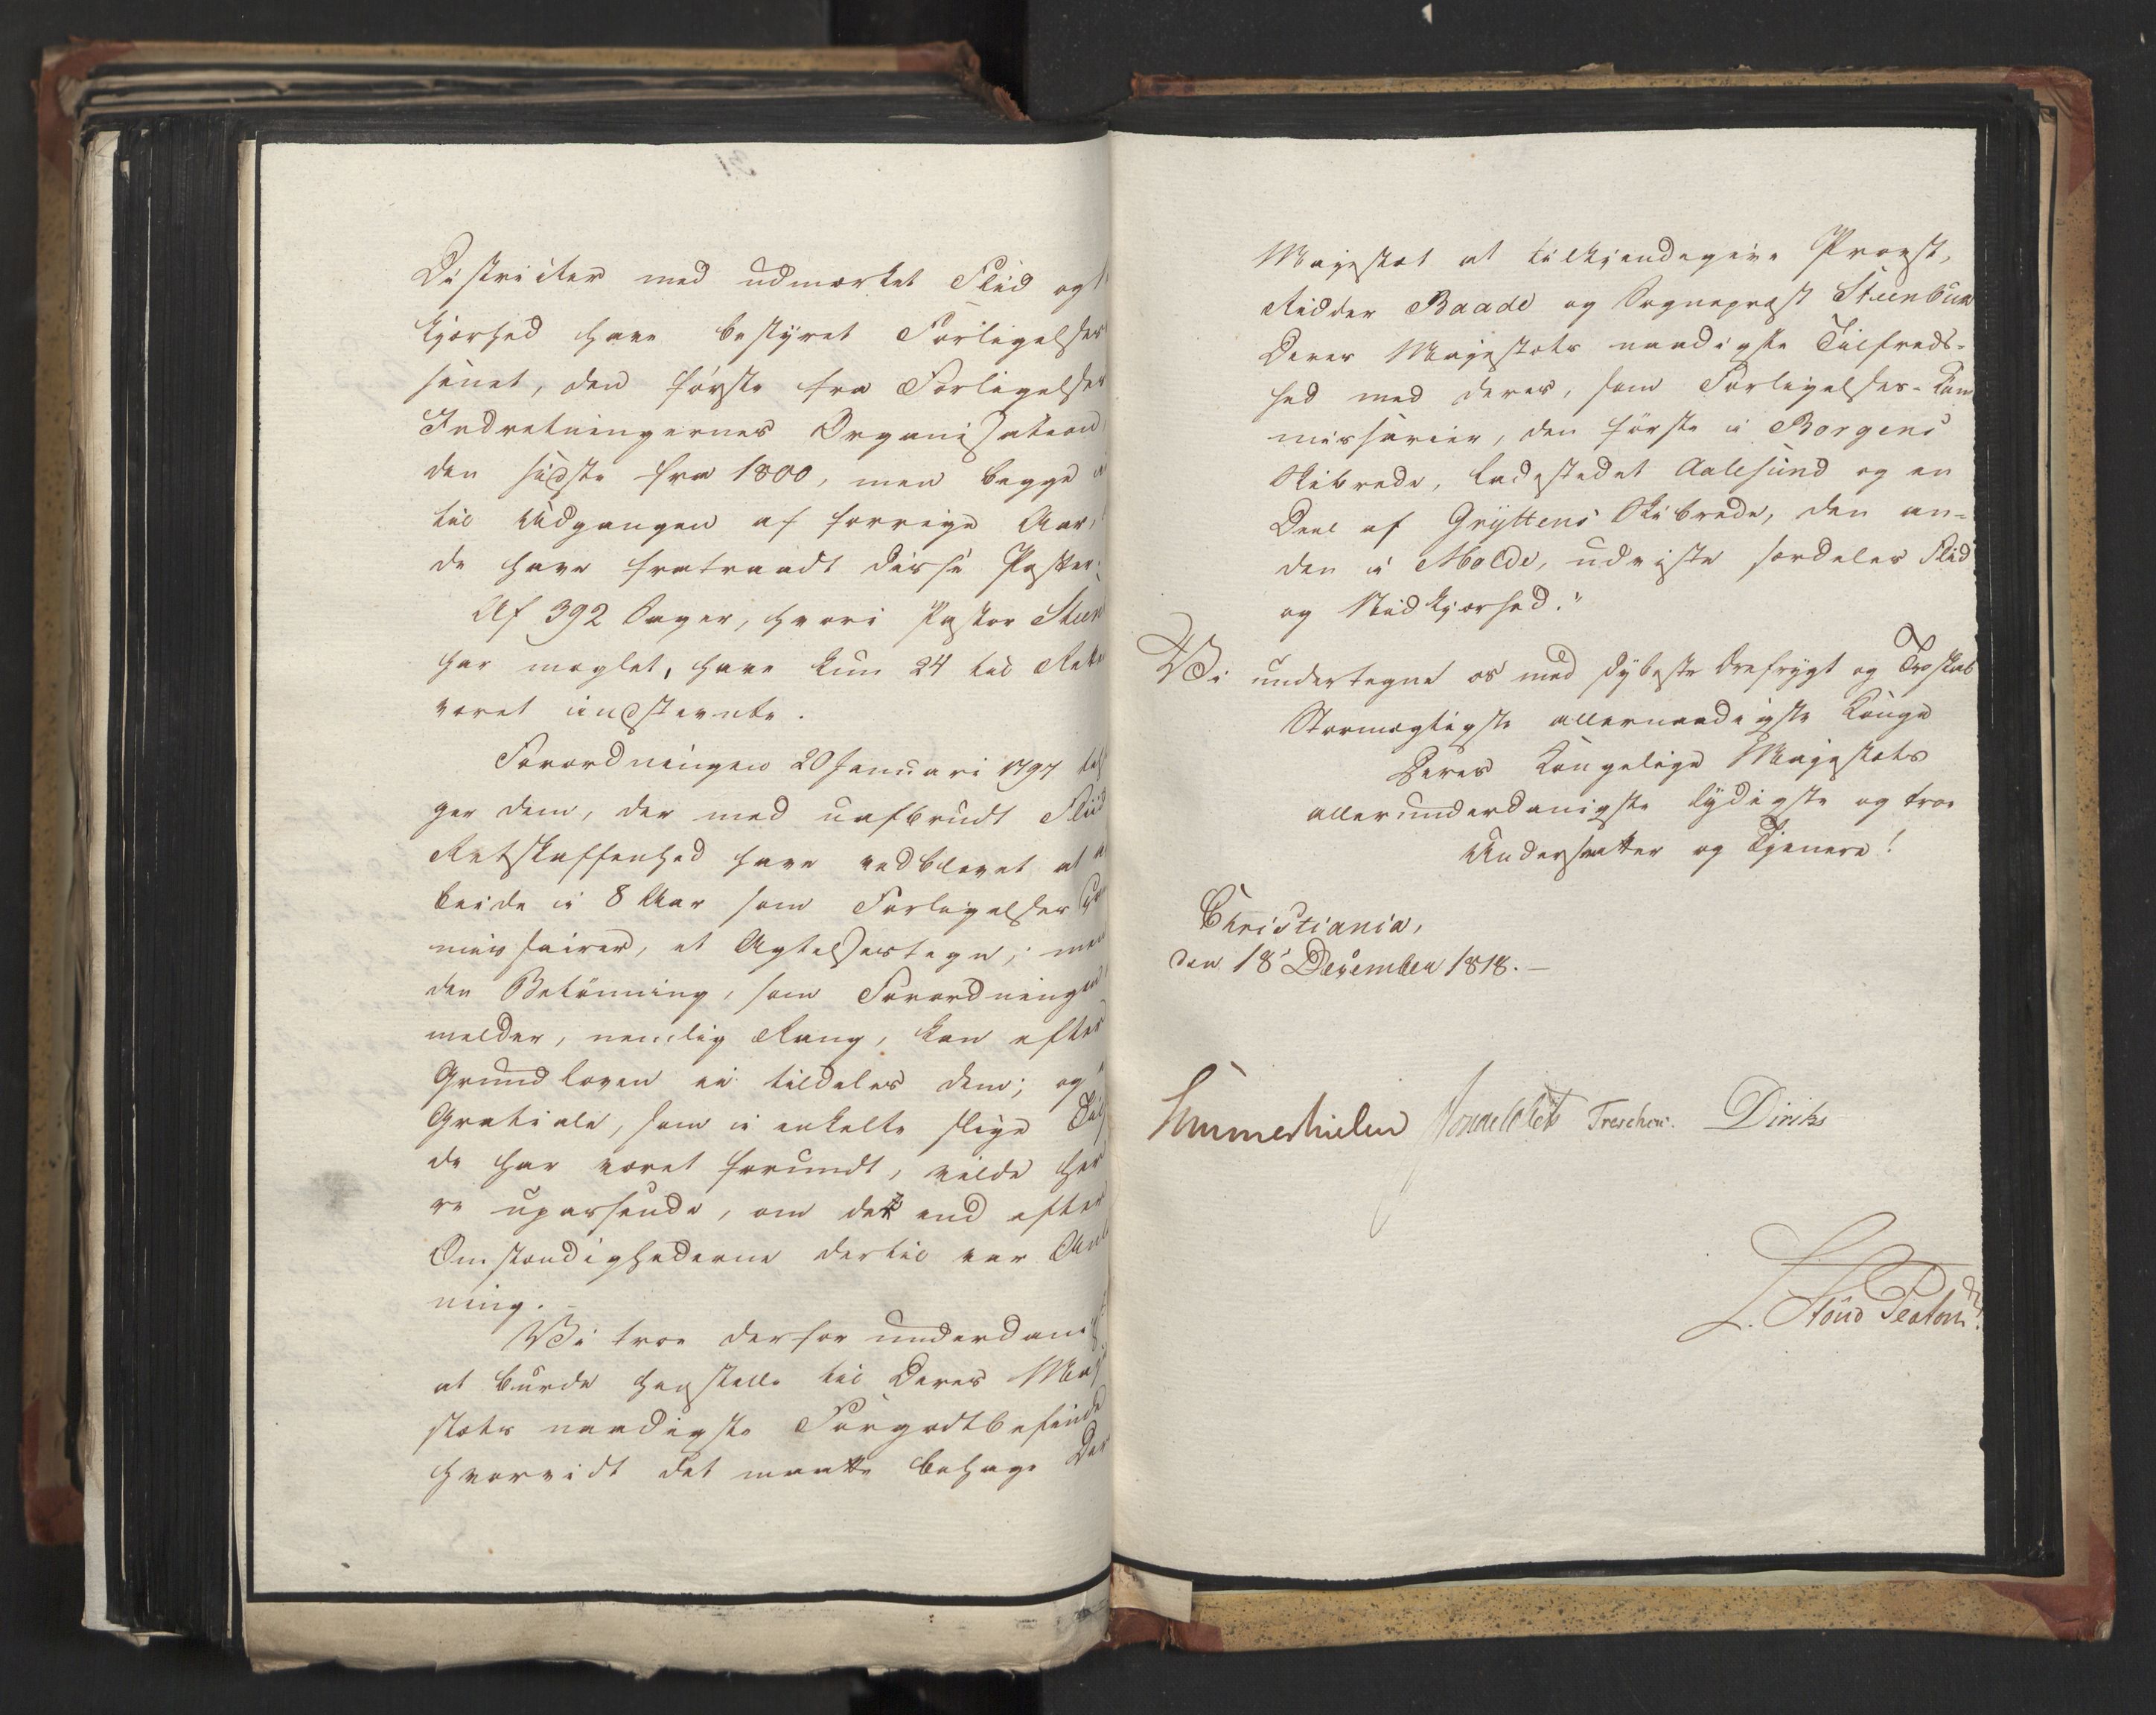 Districter med udmærket Flid og
kjærhed have bestyret Forligelses
senet, den første fra Forligelses
Indretningernes Organisation
den sidste fra 1800, men begge
til Udgangen af forrige Aar,
de have fratraadt disse Poster.
Af 392 Sager, hvori Pastor Steen
har mæglet, have kun 24 til Rette
været indstevnte.
Forordningen 20 Januari 1797 til
ger dem, der med uafbrudt Fliid
Retskaffenhed have vedblevet at
beide i 8 Aar som Forligelses Com
missairer, et Agtelsestegn; men
den Belønning, som Forordningen
melder, nemlig Rang, kan efter
Grundloven ei tildeles dem; og
Gratiale, som i enkelte slige Til
de har været forundt, vilde her
re upassende, om der end efter
Omstændighederne dertil var Anl
ning. -
Vi troe derfor underdanigst
at burde henstille til Deres Maje
stæts naadigste Forgodtbefinde
hvorvidt det maatte behage Der
Majestæt at tilkjendegive Provst,
Ridder Baade og Sognepræst Steenbuch
Deres Majestæts naadigste Tilfreds-
hed med deres, som Forligelses-Com
missarier, den første i Borgens
Skibrede, Ladestedet Aalesund og en
Deel af Gryttens Skibrede, den an-
den i Molde, udviste særdeles Flid
og Nidkjærhed."
Vi undertegne os med dybeste Ærefrygt og Troskab
Stormægtigste allernaadigste Konge
Deres Kongelige Majestæts
allerunderdanigste lydigste og troe
Undersaatter og Tjenere!
Christiania,
den 18 December 1818. -
Sommerhielm Motzfeldt Treschow. Diriks
L. Stoud Platou